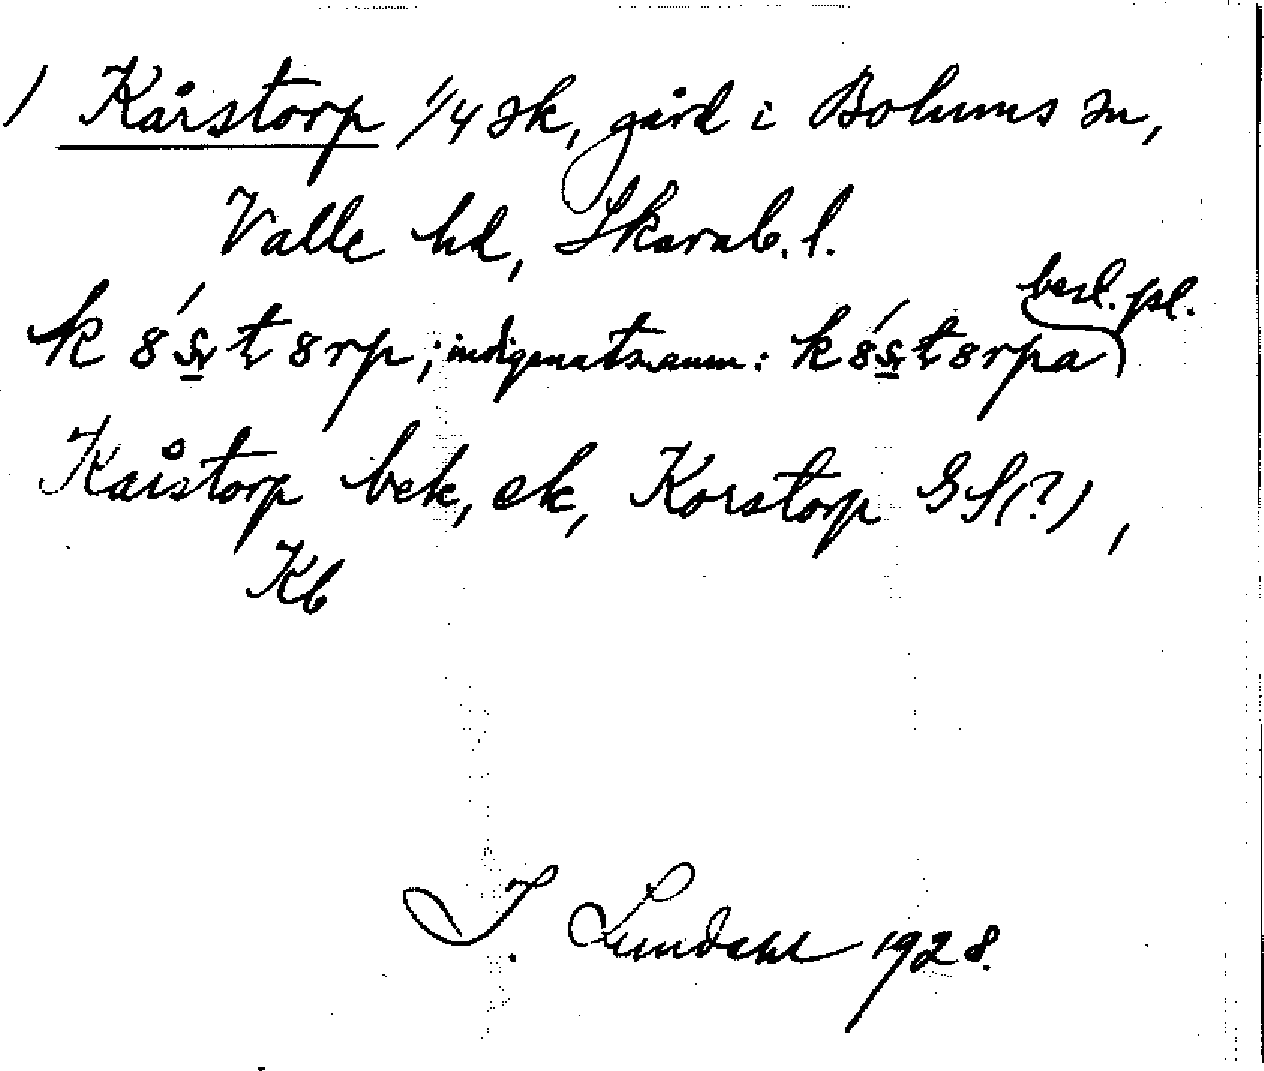 / Kårstorp 1/4 sk, gård i Bolums sn,
Valle hd, Skarab. l.
best. pl.
k8́s̱t8rp; indigenatsnamn: k8́s̱t8rpa
Kårstorp bek, ek, Korstorp GS(?),
Kb
I. Lundahl 1928.